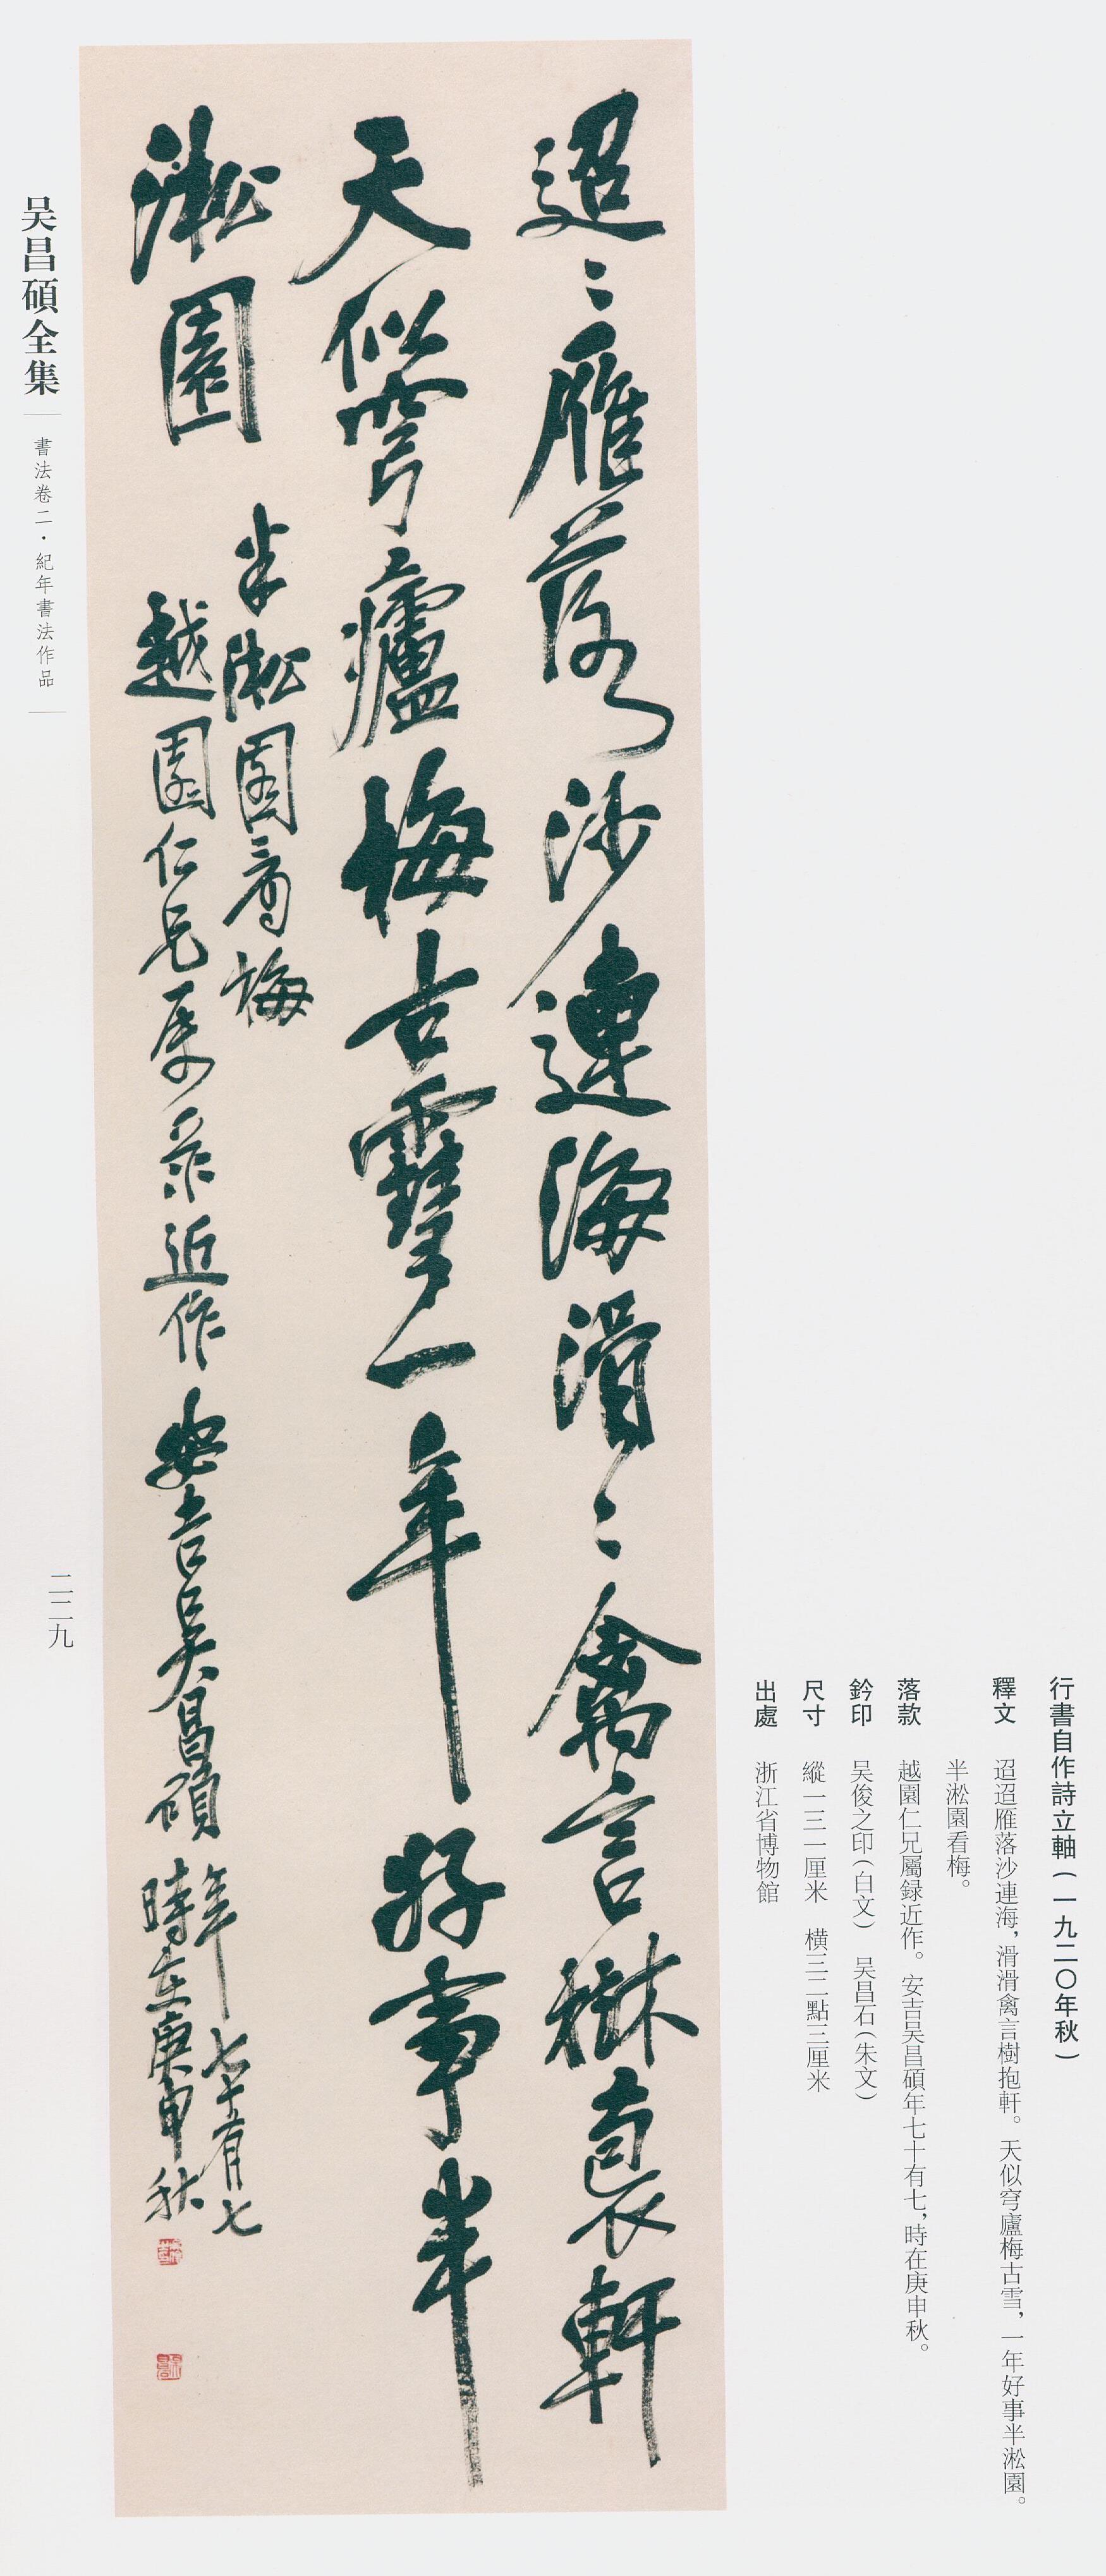 行書自作詩立軸(一九二〇年秋)
釋文 迢迢雁落沙連海，滑滑禽言樹抱軒。天似穹廬梅古雪，一年好事半淞園。
半淞園看梅。
落款 越園仁兄屬録近作。安吉吴昌碩年七十有七，時在庚申秋。
鈐印 吴俊之印(白文) 吴昌石(朱文)
尺寸 縱一三一厘米 橫三二點三厘米
出處 浙江省博物館
迢〻雁落沙連海滑〻禽言樹裹軒
天似穹廬梅古雪一年好事半
淞園
半淞園看梅
越園仁兄屬录近作安吉吴昌碩年七十有七
時在庚申秋
吴昌碩全集
書法卷二·紀年書法作品
二二九